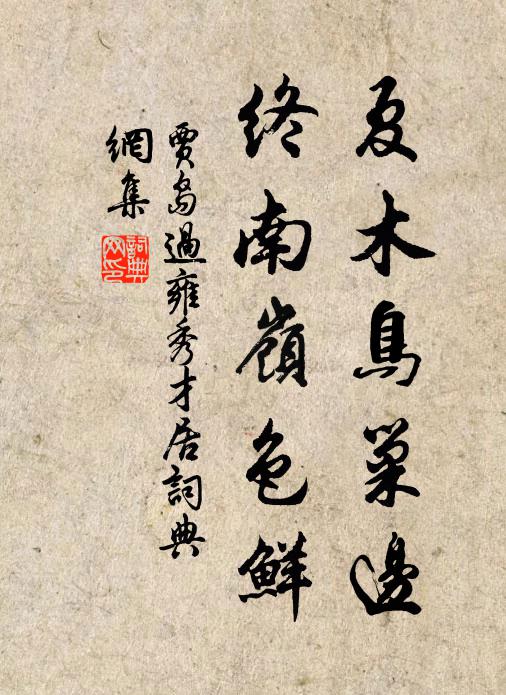 夏木鳥巢邊
終南嶺色鮮
賈島過雍秀才居詞典
網集
詞典
网印